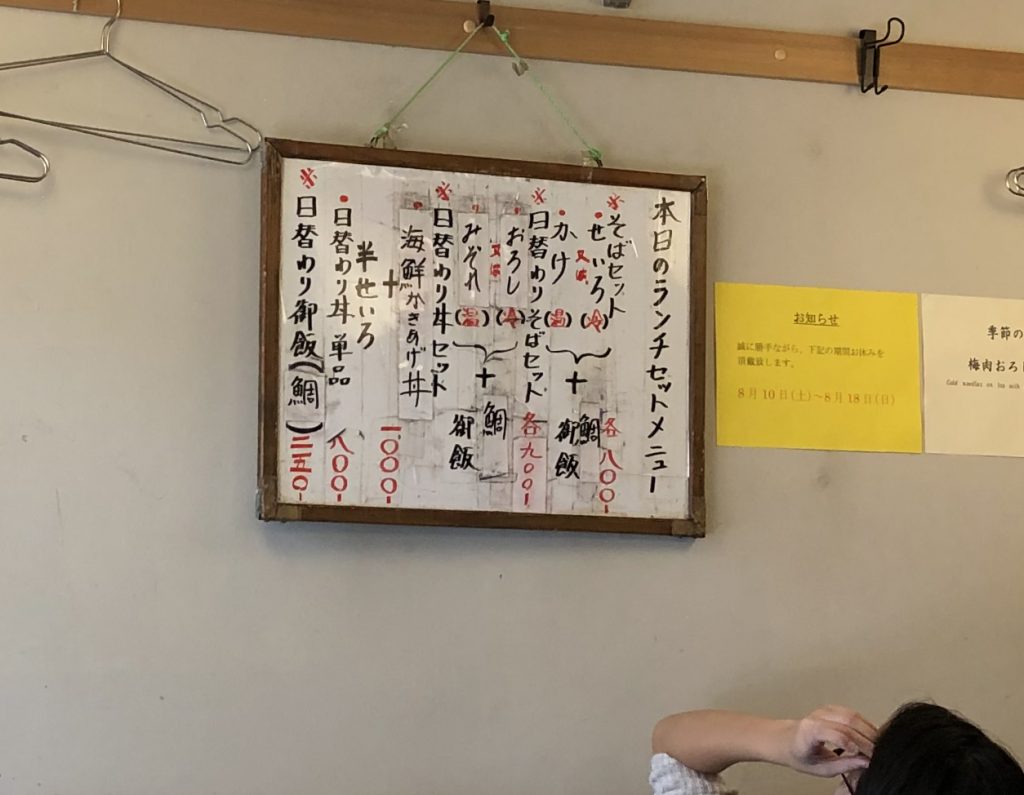 本日のランチセットメニュー
※そばセット 各八〇〇-
・せいろ(冷)
又は
・かけ(温)
+
鯛御飯
※日替わりそばセット 各九〇〇-
・おろし(冷)
又は
・みぞれ(温)
+
鯛御飯
※日替わり丼セット
・海鮮かきあげ丼
+
半せいろ 一〇〇〇-
・日替わり丼 単品 八〇〇-
※日替わり御飯(鯛) 二五〇-
お知らせ
誠に勝手ながら、下記の期間お休みを
頂戴致します。
8月10日(土)～8月18日(日)
季節の
梅肉おろ
Cold noodles on